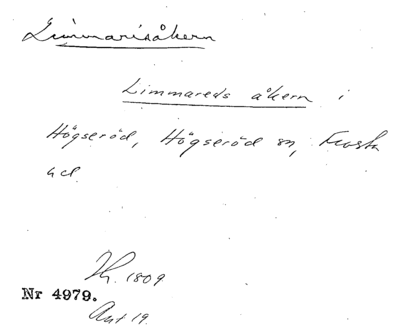 Limmarisåkern
Limmareds åkern i
Högseröd, Högseröd sn, Frosta
hd
Th. 1809
Nr 4979.
Akt 19.